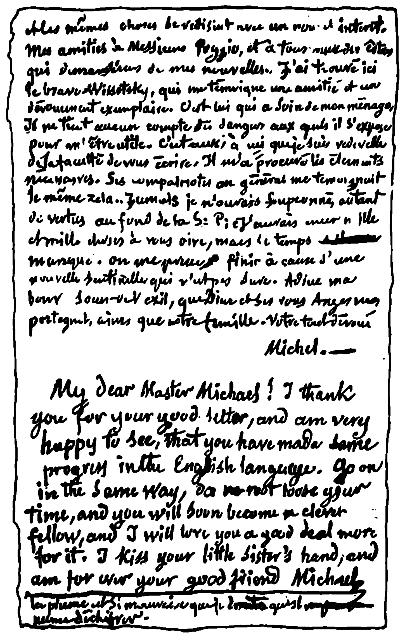 et les mêmes choses se redisent avec un nouvel intérêt.
Mes amitiés à Messieurs Poggio, et à tous
qui de mes nouvelles. J'ai trouvé ici
le brave Wissotsky, qui me témoigne une amitié et un
dévouement exemplaire. C'est lui qui a soin de mon ménage.
Il ne tient aucun compte du danger aux quels il s'expose
pour m'être utile. C'est aussi à lui que je suis redevable
de la faculté de vous écrire. Il m'a procuré les éléments
nécessaires. Ses compatriotes en général me témoignent
le même zèle. Jamais je n'aurais soupçonné autant
de vertus au fond de la S: Pie J'aurais encor mille
et mille choses à vous dire, mais le temps
manque. on me presse finir à cause d'une
nouvelle sentinelle qui n'est pas sûre. Adieu ma
bonne Soeur exil, que Dieu et ses Anges vous
protegent, ainsi que votre famille. Votre tout dévoué
Michel.
My dear Master Michael! I thank
you for your good letter, and am very
happy to see, that you have made some
progress in the English language. Go on
in the same way, do not loose your
time, and you will soon become a clever
fellow, and I will love you a good deal more
for it. I kiss your little sister's hand, and
am for ever your good friend Michael
La plume est si mauvaise que je doute qu'est
même déchiffrer.